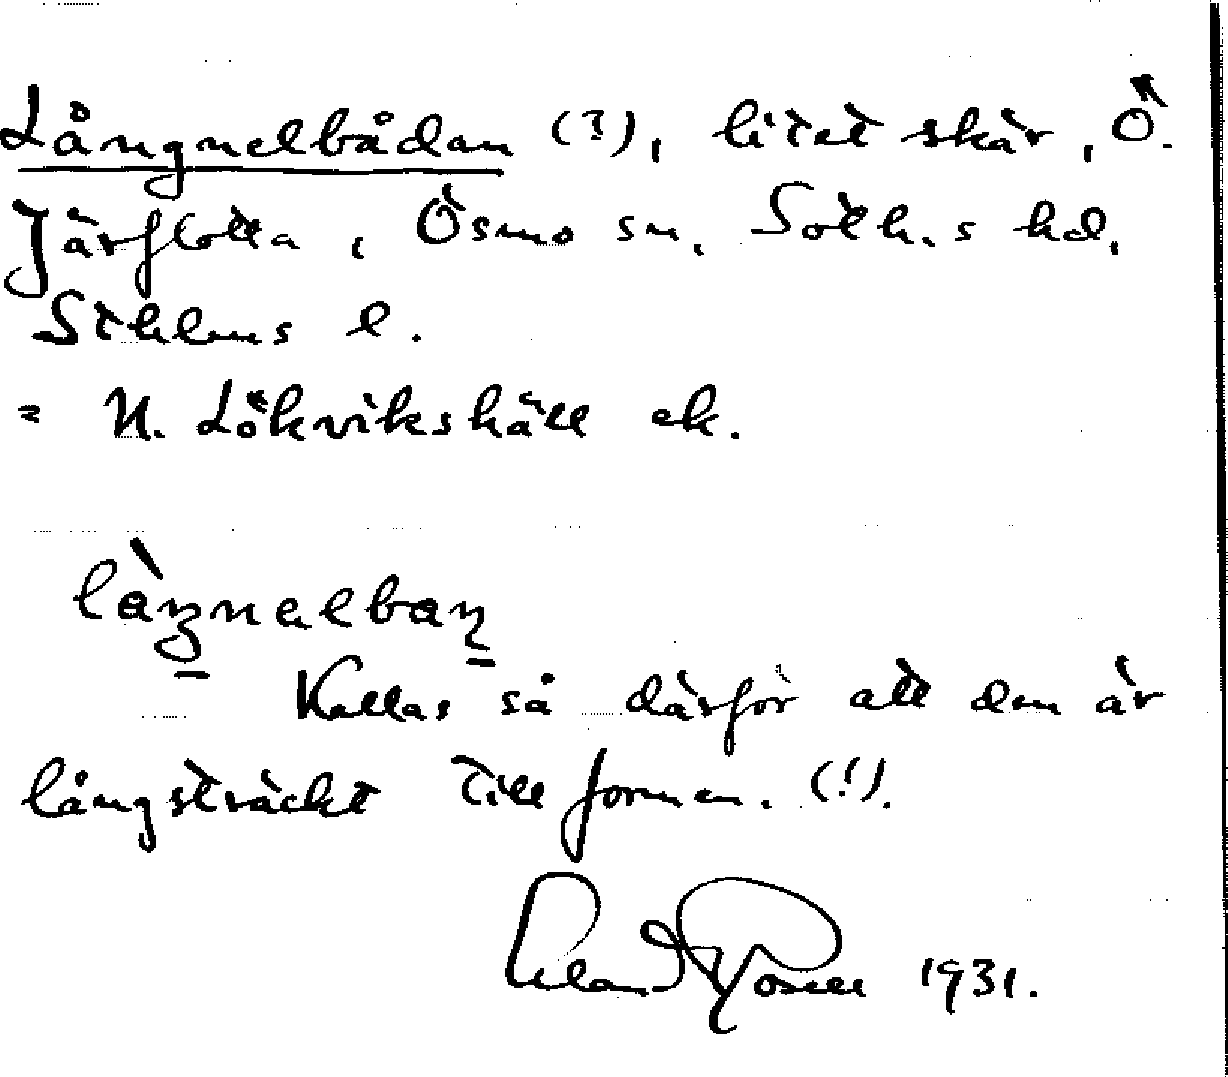 Långnelbådan (?), litet skär, Ö.
Järflotta, Ösmo sn, Soth.s hd,
Sthlms l.
= N. Lökvikshäll ek.
làŋnelbaṉ
Kallas så därför att den är
långsträckt till formen. (!).
1931.